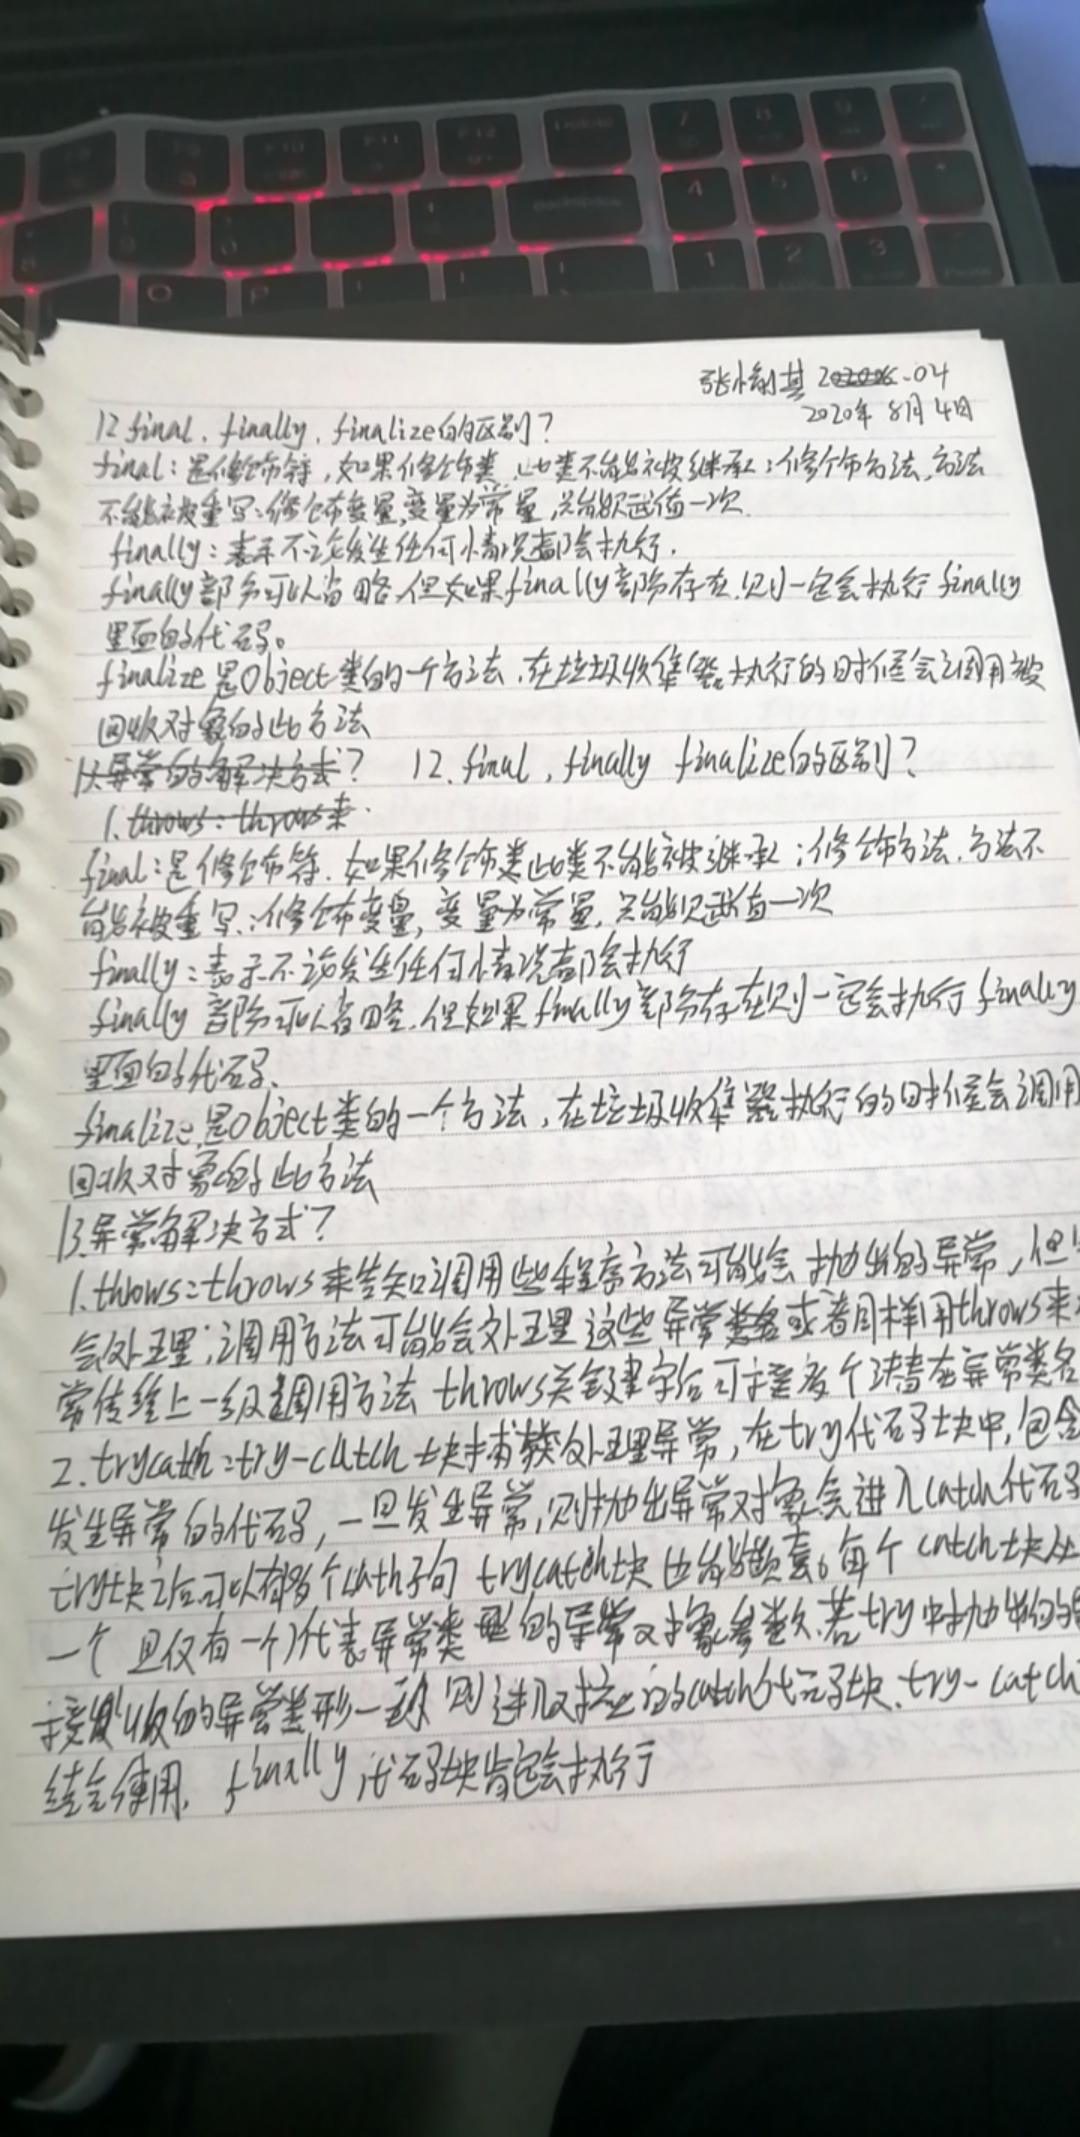 F9
F10
F11
F12
Delete
7
8
9
backspace
4
5
6
O
P
1
2
3
2020年8月4日
12 final、finally、finalize的区别?
final:是修饰符,如果修饰类,此类不能被继承;修饰方法,方法
不能被重写;修饰变量,变量为常量,只能赋值一次
finally:表示不论发生任何情况都会执行.
finally部分可以省略,但如果finally部分存在,则一定会执行finally
里面的代码。
finalize是Object类的一个方法,在垃圾收集器执行的时候会调用被
回收对象的此方法
13.异常的解决方式? 12.final,finally finalize的区别?
1.throws:throws来
final:是修饰符.如果修饰类此类不能被继承;修饰方法.方法不
能被重写;修饰变量,变量为常量,只能赋值一次
finally:表示不论发生任何情况都会执行
finally部分可以省略.但如果finally部分存在则一定会执行finally
里面的代码.
finalize是Object类的一个方法,在垃圾收集器执行的时候会调用
回收对象的此方法
13.异常解决方式?
1.throws:throws来告知调用些程序方法可能会抛出的异常,但
会处理;调用方法可能会处理这些异常类名或者同样用throws来
常传给上一级调用方法 throws关键字后可接多个潜在异常类名
2.trycath:try-catch块捕获处理异常,在try代码块中,包含
发生异常的代码,一旦发生异常,则抛出异常对象会进入catch代码
try块之后可以有多个cath子句 trycatch块也能嵌套。每个catch块
一个且仅有一个)代表异常类型的异常对象参数.若try中抛出的
接收的异常类形一致则进入对应的catch代码块.try-catch
结合使用,finally代码块肯定会执行